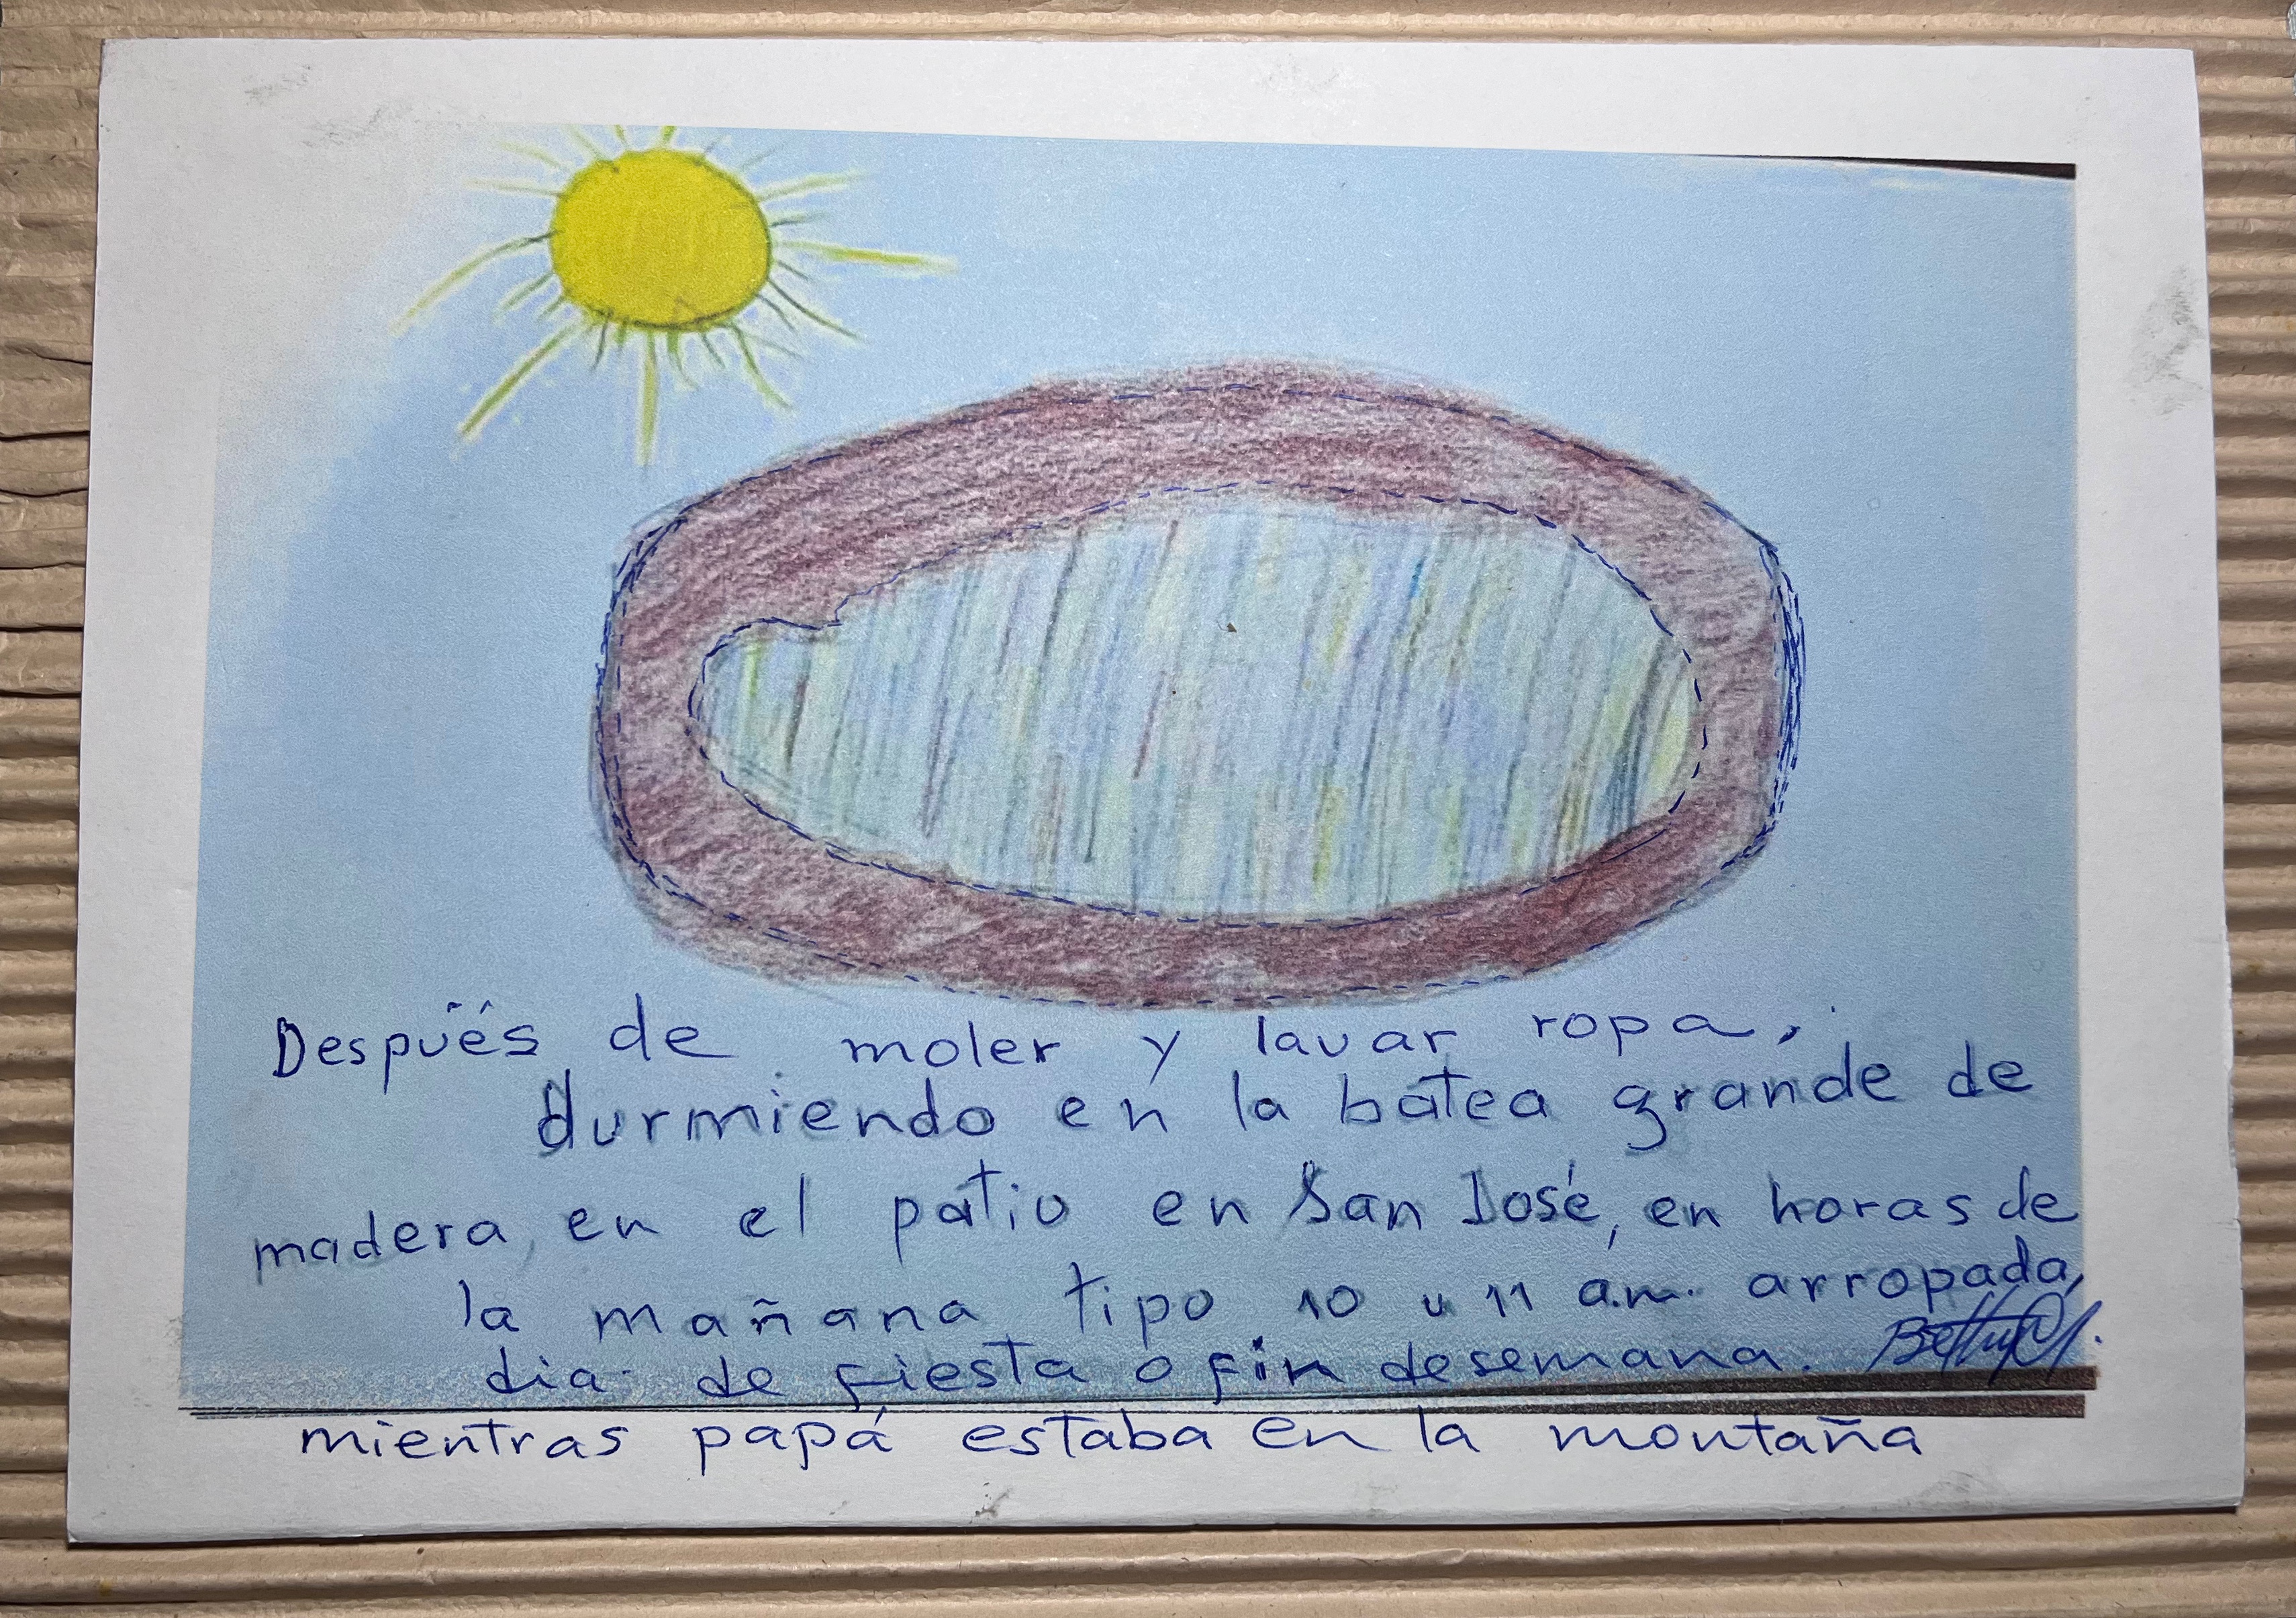 Después de moler y lavar ropa,
durmiendo en la batea grande de
madera, en el patio en San José, en horas de
la mañana tipo 10 u 11 a.m. arropada,
dia de fiesta o fin de semana.
mientras papá estaba en la montaña